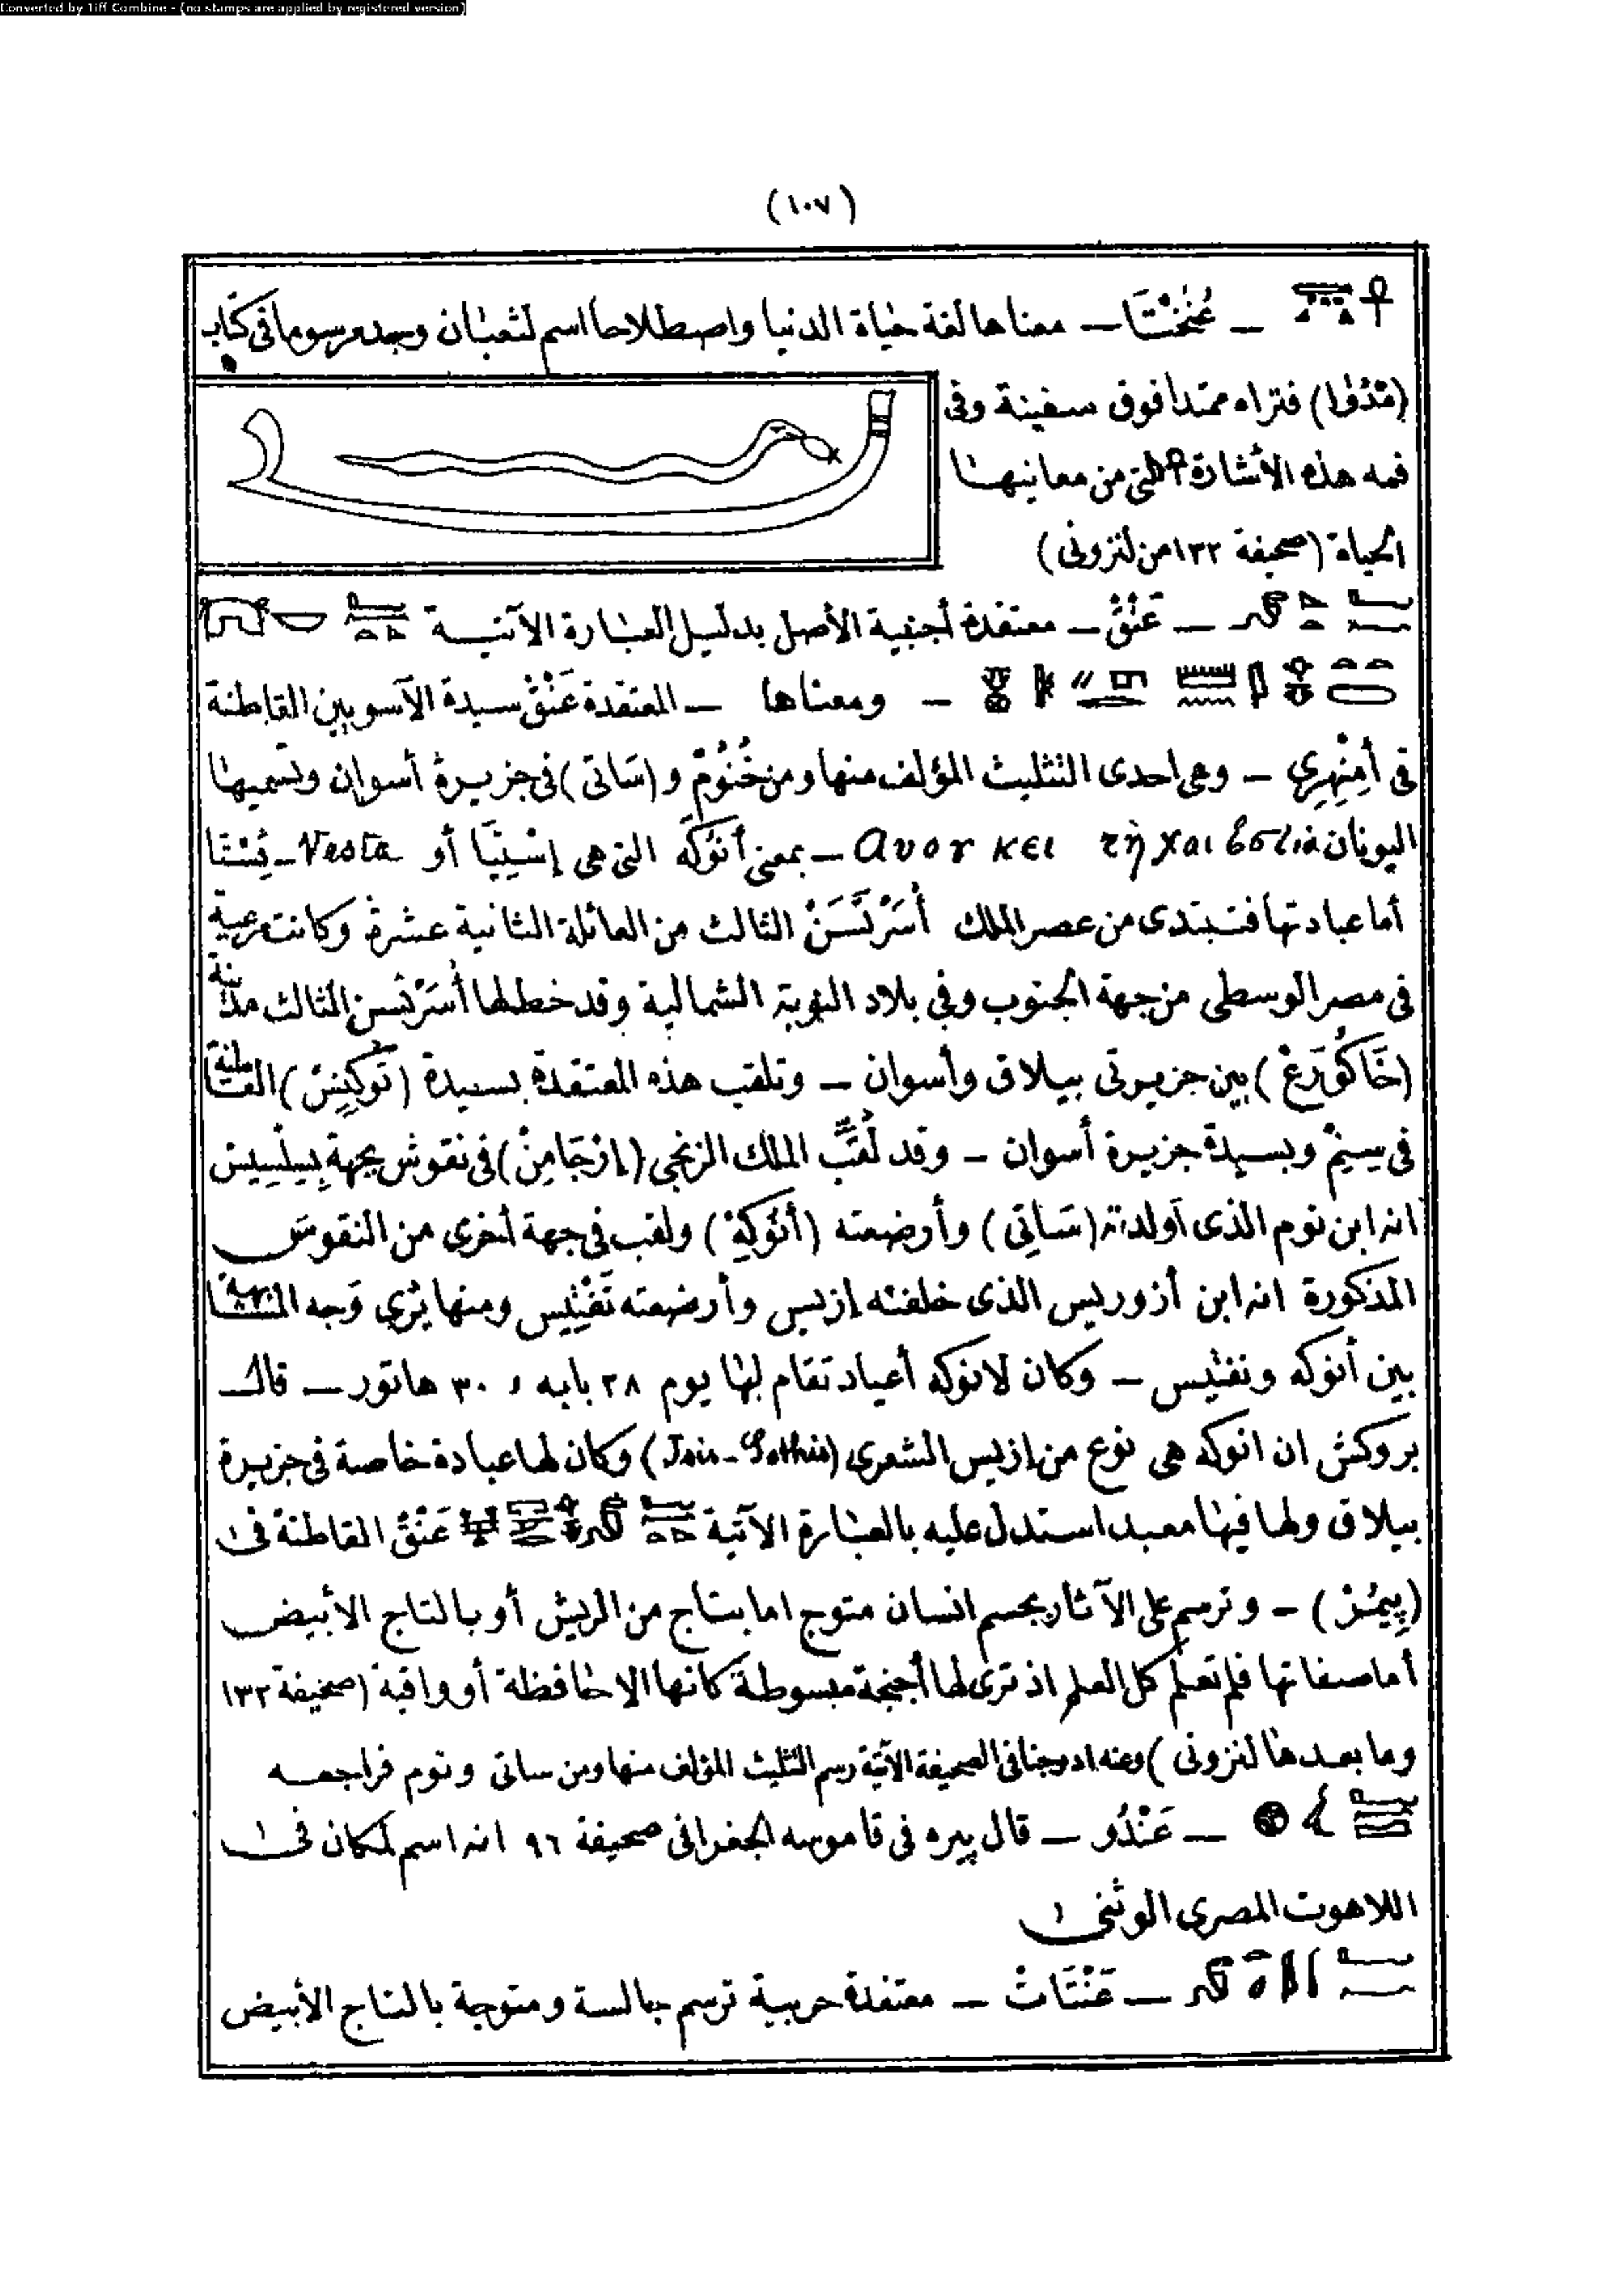 Converted by Tiff Combine - (no stamps are applied by registered version)
(١٠٧)
— عُنْخْتَا — معناها لغة حياة الدنيا واصطلاحا اسم لثعبان وجد مرسوما فى كتاب
فتراه ممتدا فوق سفينة وفى
فمه هذه الاشارة ☥ التى من معانيها
الحياة (صحيفة ١٣٢ من لنزونى)
— عَنْقْ — معتقدة أجنبية الأصل بدليل العبارة الآتية
— ومعناها — المعتقدة عَنْقْ سيدة الآسويين القاطنة
فى أَمِنْهِرِي — وهى احدى التثليث المؤلف منها ومن خْنُومْ و (سَاتى) فى جزيرة أسوان وتسميها
اليونان Ανουκει τῇ και ἑστίᾳ — بمعنى أنوكه التى هى إسْتِيَا أو Vesta — فِسْتَا
أما عبادتها فتبتدى من عصر الملك أُسَرْتَسَنْ الثالث من العائلة الثانية عشرة وكانت مرعية
فى مصر الوسطى من جهة الجنوب وفى بلاد النوبة الشمالية وقد خطط لها أُسَرْتَسن الثالث مدينة
(خَاكُورَعْ) بين جزيرتى بيلاق وأسوان — وتلقب هذه المعتقدة بسيدة (تُوكِنِسْ) القاطنة
فى وبسيدة جزيرة أسوان — وقد لُقِّبَ الملك الزنجى (إرْجَامِنْ) فى نقوش بجهة بِسِلْسِيسْ
انه ابن نوم الذى أولدته (سَاتِى) وأرضعته (أَنُوكِهْ) ولقب فى جهة أخرى من النقوش
المذكورة انه ابن أزوريس الذى خلفته إزيس وأرضعته نَفْتِيس ومنها يُرى وَجه المشابهة
بين أنوكه ونفتيس — وكان لانوكه أعياد تقام لها يوم ٢٨ بابه و ٣٠ هاتور — قال
بروكش ان انوكه هى نوع من إزيس الشعرى (Isis-Sothis) وكان لها عبادة خاصة فى جزيرة
بيلاق ولها فيها معبد استدل عليه بالعبارة الآتية عَنْقْ القاطنة فى
— وترسم على الآثار بجسم انسان متوج اما بتاج من الريش أو بالتاج الأبيض
أما صفاتها فلم تعلم كل العلم اذ ترى لها أجنحة مبسوطة كانها الاحافظة أو واقية (صحيفة ١٣٢
وما بعدها لنزونى) وعنه ادرجنا فى الصحيفة الآتية رسم التثليث المؤلف منها ومن ساتى ونوم فراجعه
— عَنْدُو — قال بيره فى قاموسه الجغرافى صحيفة ٩٦ انه اسم لمكان فى
اللاهوت المصرى الوثنى
— عَنْتَاتْ — معتقدة حربية ترسم جالسة ومتوجة بالتاج الأبيض